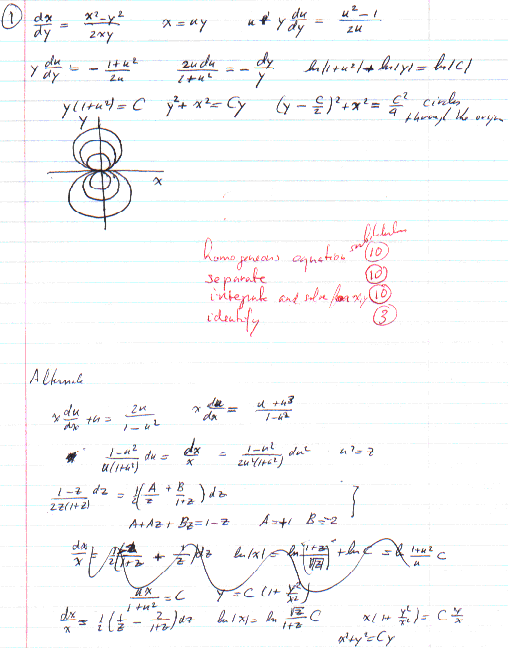 ① dx/dy = (x²-y²)/(2xy)   x = uy   u + y du/dy = (u²-1)/(2u)
y du/dy = - (1+u²)/(2u)   2u du/(1+u²) = - dy/y   ln(1+u²) + ln|y| = ln|C|
y(1+u²) = C   y²+x² = Cy   (y - C/2)² + x² = C²/4   circles through the origin
y
x
homogeneous equation substitution ⑩
separate ⑩
integrate and solve for x,y ⑩
identify ③
Alternate
x du/dx + u = 2u/(1-u²)   x du/dx = (u+u³)/(1-u²)
(1-u²)/(u(1+u²)) du = dx/x = (1-u²)/(2u²(1+u²)) du²   u² = z
(1-z)/(2z(1+z)) dz = 1/2 (A/z + B/(1+z)) dz
A+Az+Bz = 1-z   A=+1   B=-2
ln|x| = ln + ln C = ln (1+u²)/u C
ux/(1+u²) = C   y = C(1+ y²/x²)
dx/x = 1/2 (1/z - 2/(1+z)) dz   ln|x| = ln √z/(1+z) C   x(1+ y²/x²) = C y/x
x²+y² = Cy